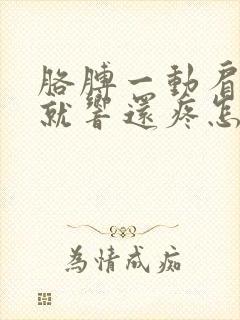 胳膊一動肩
就響還疼怎
為情成痴